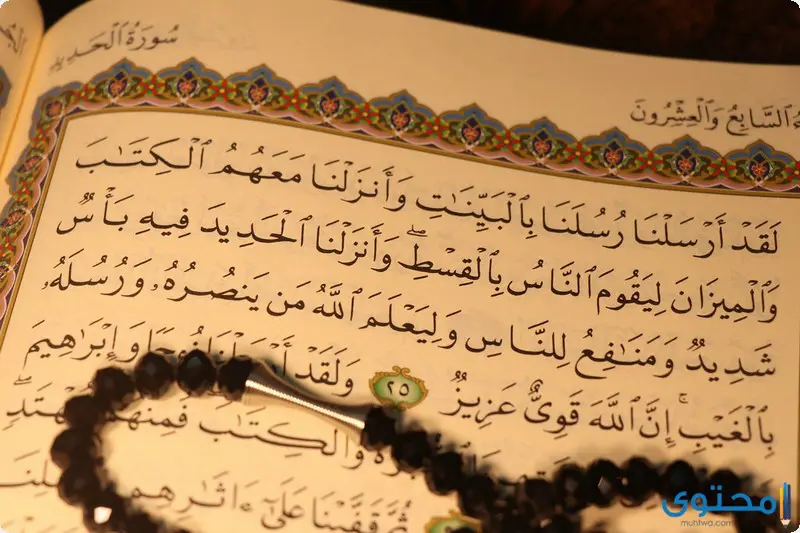 سُورَةُ ٱلْحَدِيدِ
ٱلسَّابِعُ وَٱلْعِشْرُونَ
لَقَدْ أَرْسَلْنَا رُسُلَنَا بِٱلْبَيِّنَٰتِ وَأَنزَلْنَا مَعَهُمُ ٱلْكِتَٰبَ
وَٱلْمِيزَانَ لِيَقُومَ ٱلنَّاسُ بِٱلْقِسْطِۖ وَأَنزَلْنَا ٱلْحَدِيدَ فِيهِ بَأْسٌ
شَدِيدٌ وَمَنَٰفِعُ لِلنَّاسِ وَلِيَعْلَمَ ٱللَّهُ مَن يَنصُرُهُۥ وَرُسُلَهُۥ
بِٱلْغَيْبِۚ إِنَّ ٱللَّهَ قَوِىٌّ عَزِيزٌ ٢٥ وَلَقَدْ نُوحًا وَإِبْرَٰهِيمَ
وَٱلْكِتَٰبَۖ فَمِنْهُم مُّهْتَدٍۖ
ثُمَّ قَفَّيْنَا عَلَىٰٓ ءَاثَٰرِهِم
محتوى
muhtwa.com